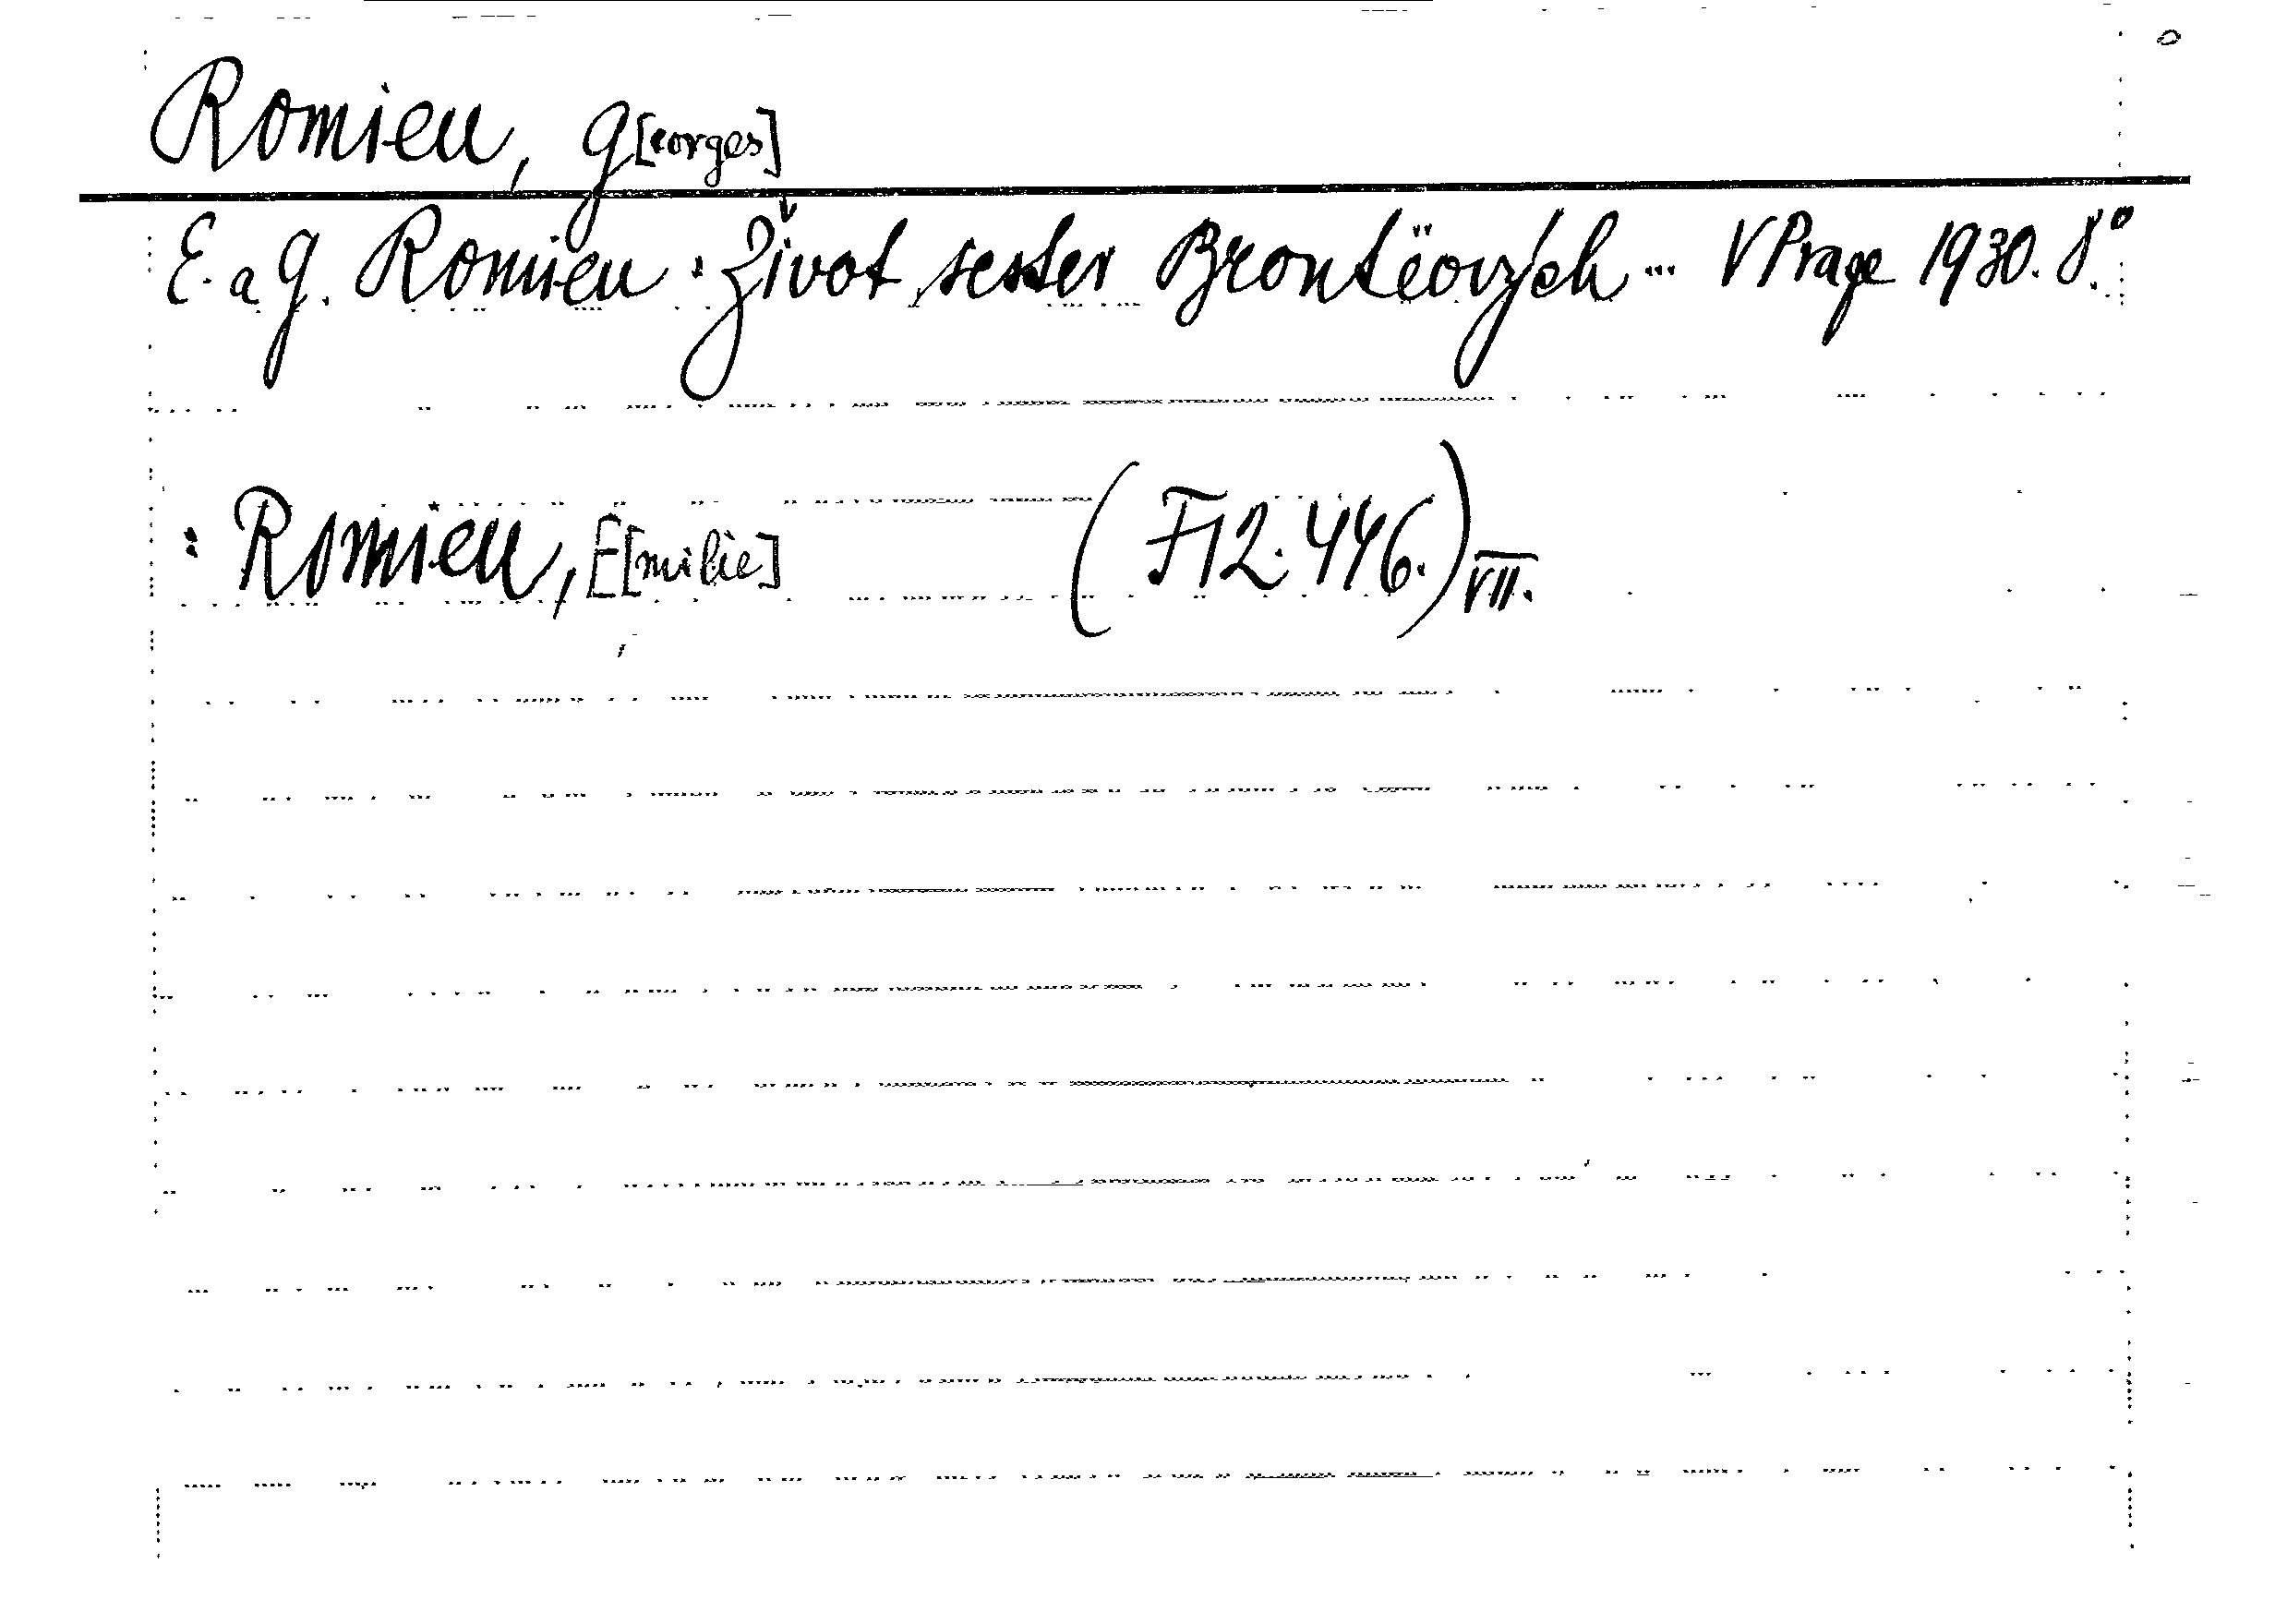 Romieu, G[eorges]
E. a G. Romieu: Život sester Brontëových... V Praze 1930. 8°.
: Romieu, E[milie] (F12.446.) VII.